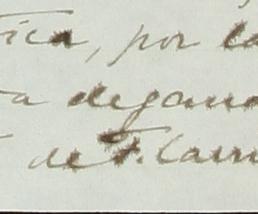 rica, por la
ta degana
de F. Cam